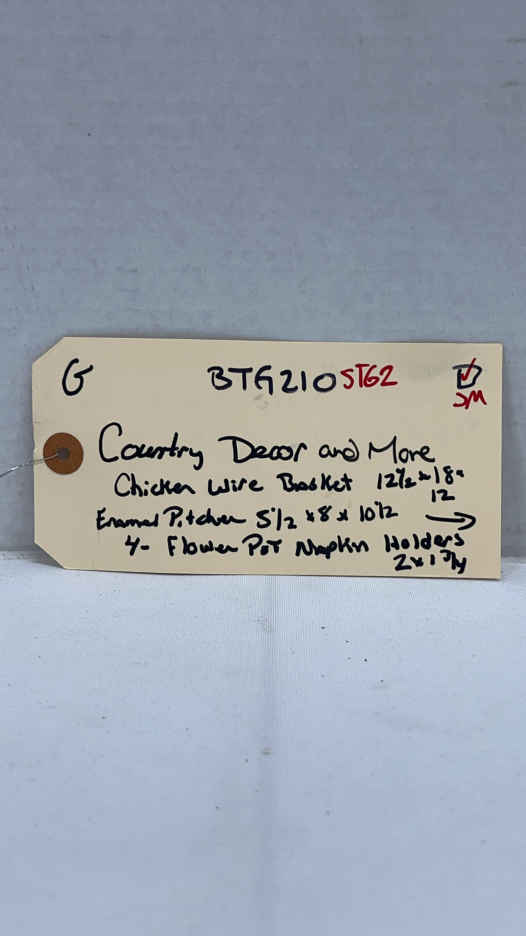 G BTG210 STG2
SM
Country Decor and More
Chicken Wire Basket 12 1/2 x 18 x
12
Enamel Pitcher 5 1/2 x 8 x 10 1/2 →
4- Flower Pot Napkin Holders
2 x 1 3/4